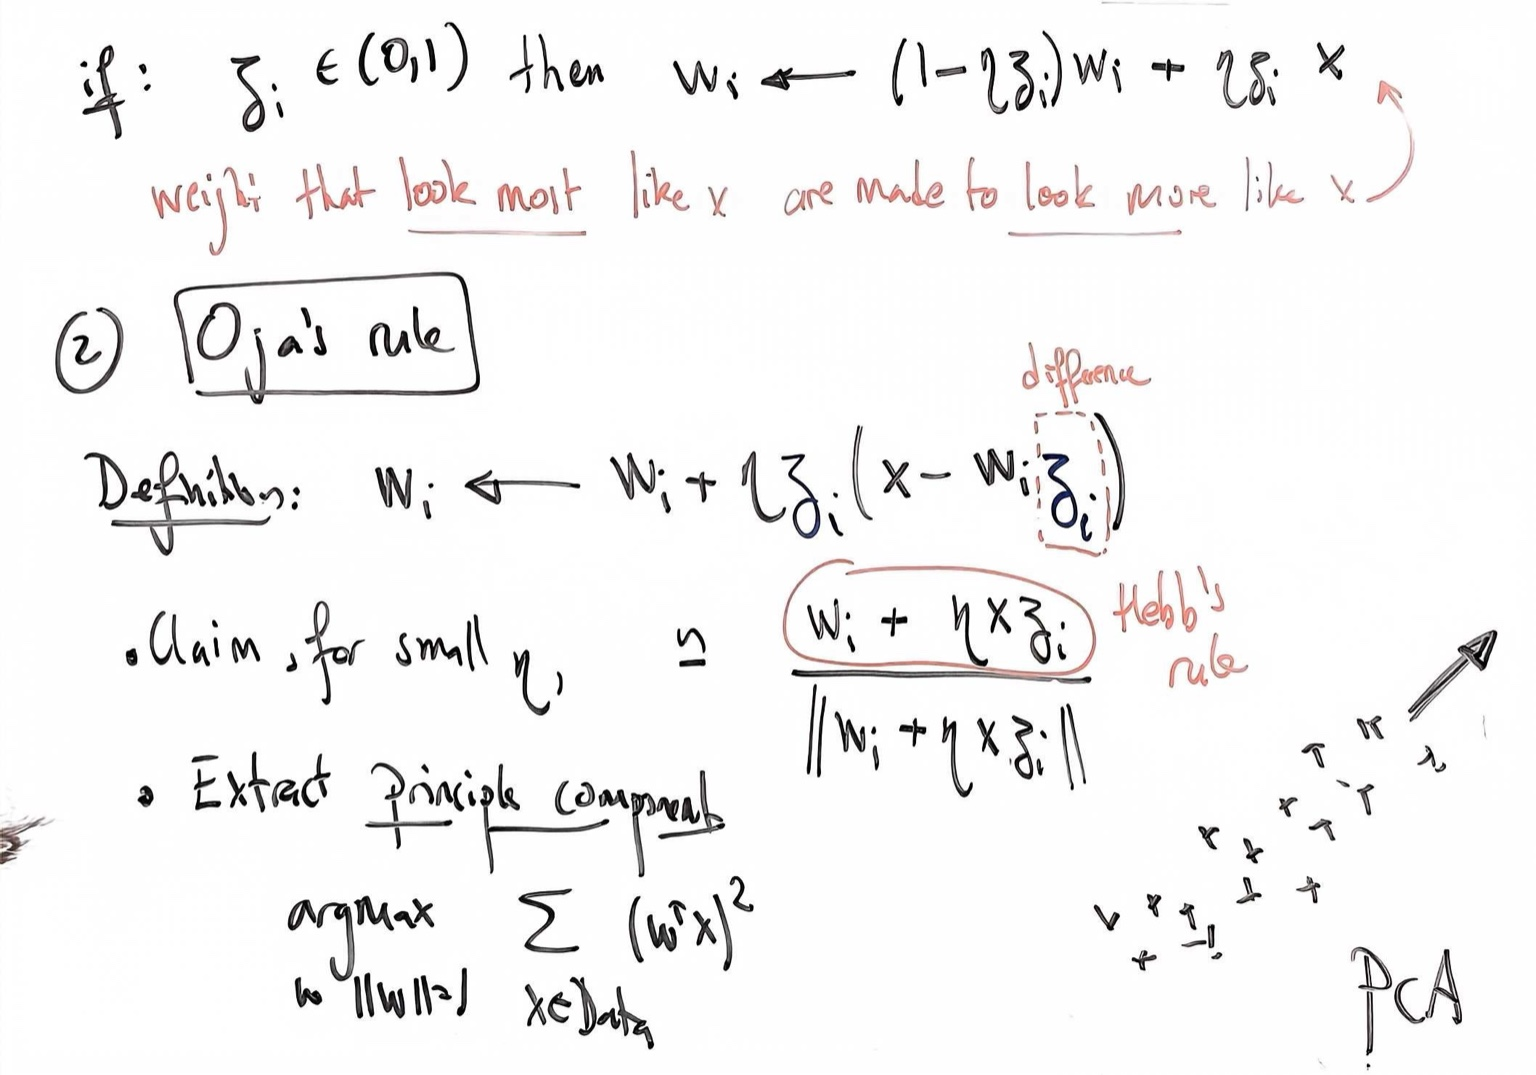 if: z_i ∈ (0,1) then w_i ← (1-ηz_i)w_i + ηz_i x
weight that look most like x are made to look more like x
② Oja's rule
difference
Definition: w_i ← w_i + ηz_i(x - w_i z_i)
• Claim, for small η, ≃ (w_i + η x z_i) / ||w_i + η x z_i||
Hebb's rule
• Extract principle components
argmax Σ (wᵀx)²
w ||w||=1 x∈Data
PCA